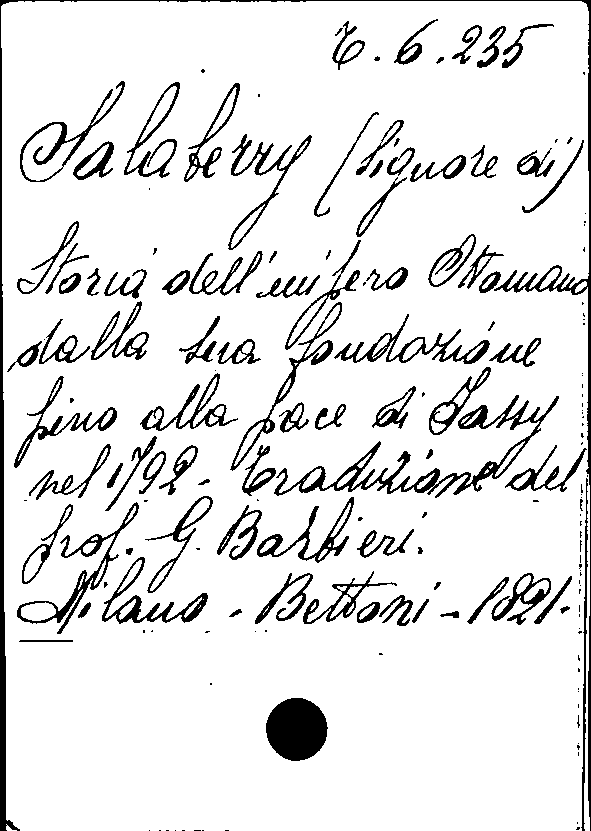 T. 6. 235
Salaberry (Signore di)
Storia dell'impero Ottomano
dalla sua fondazione
fino alla pace di Jassy
nel 1792 - Traduzione del
prof. G. Barbieri.
Milano - Bettoni - 1821.